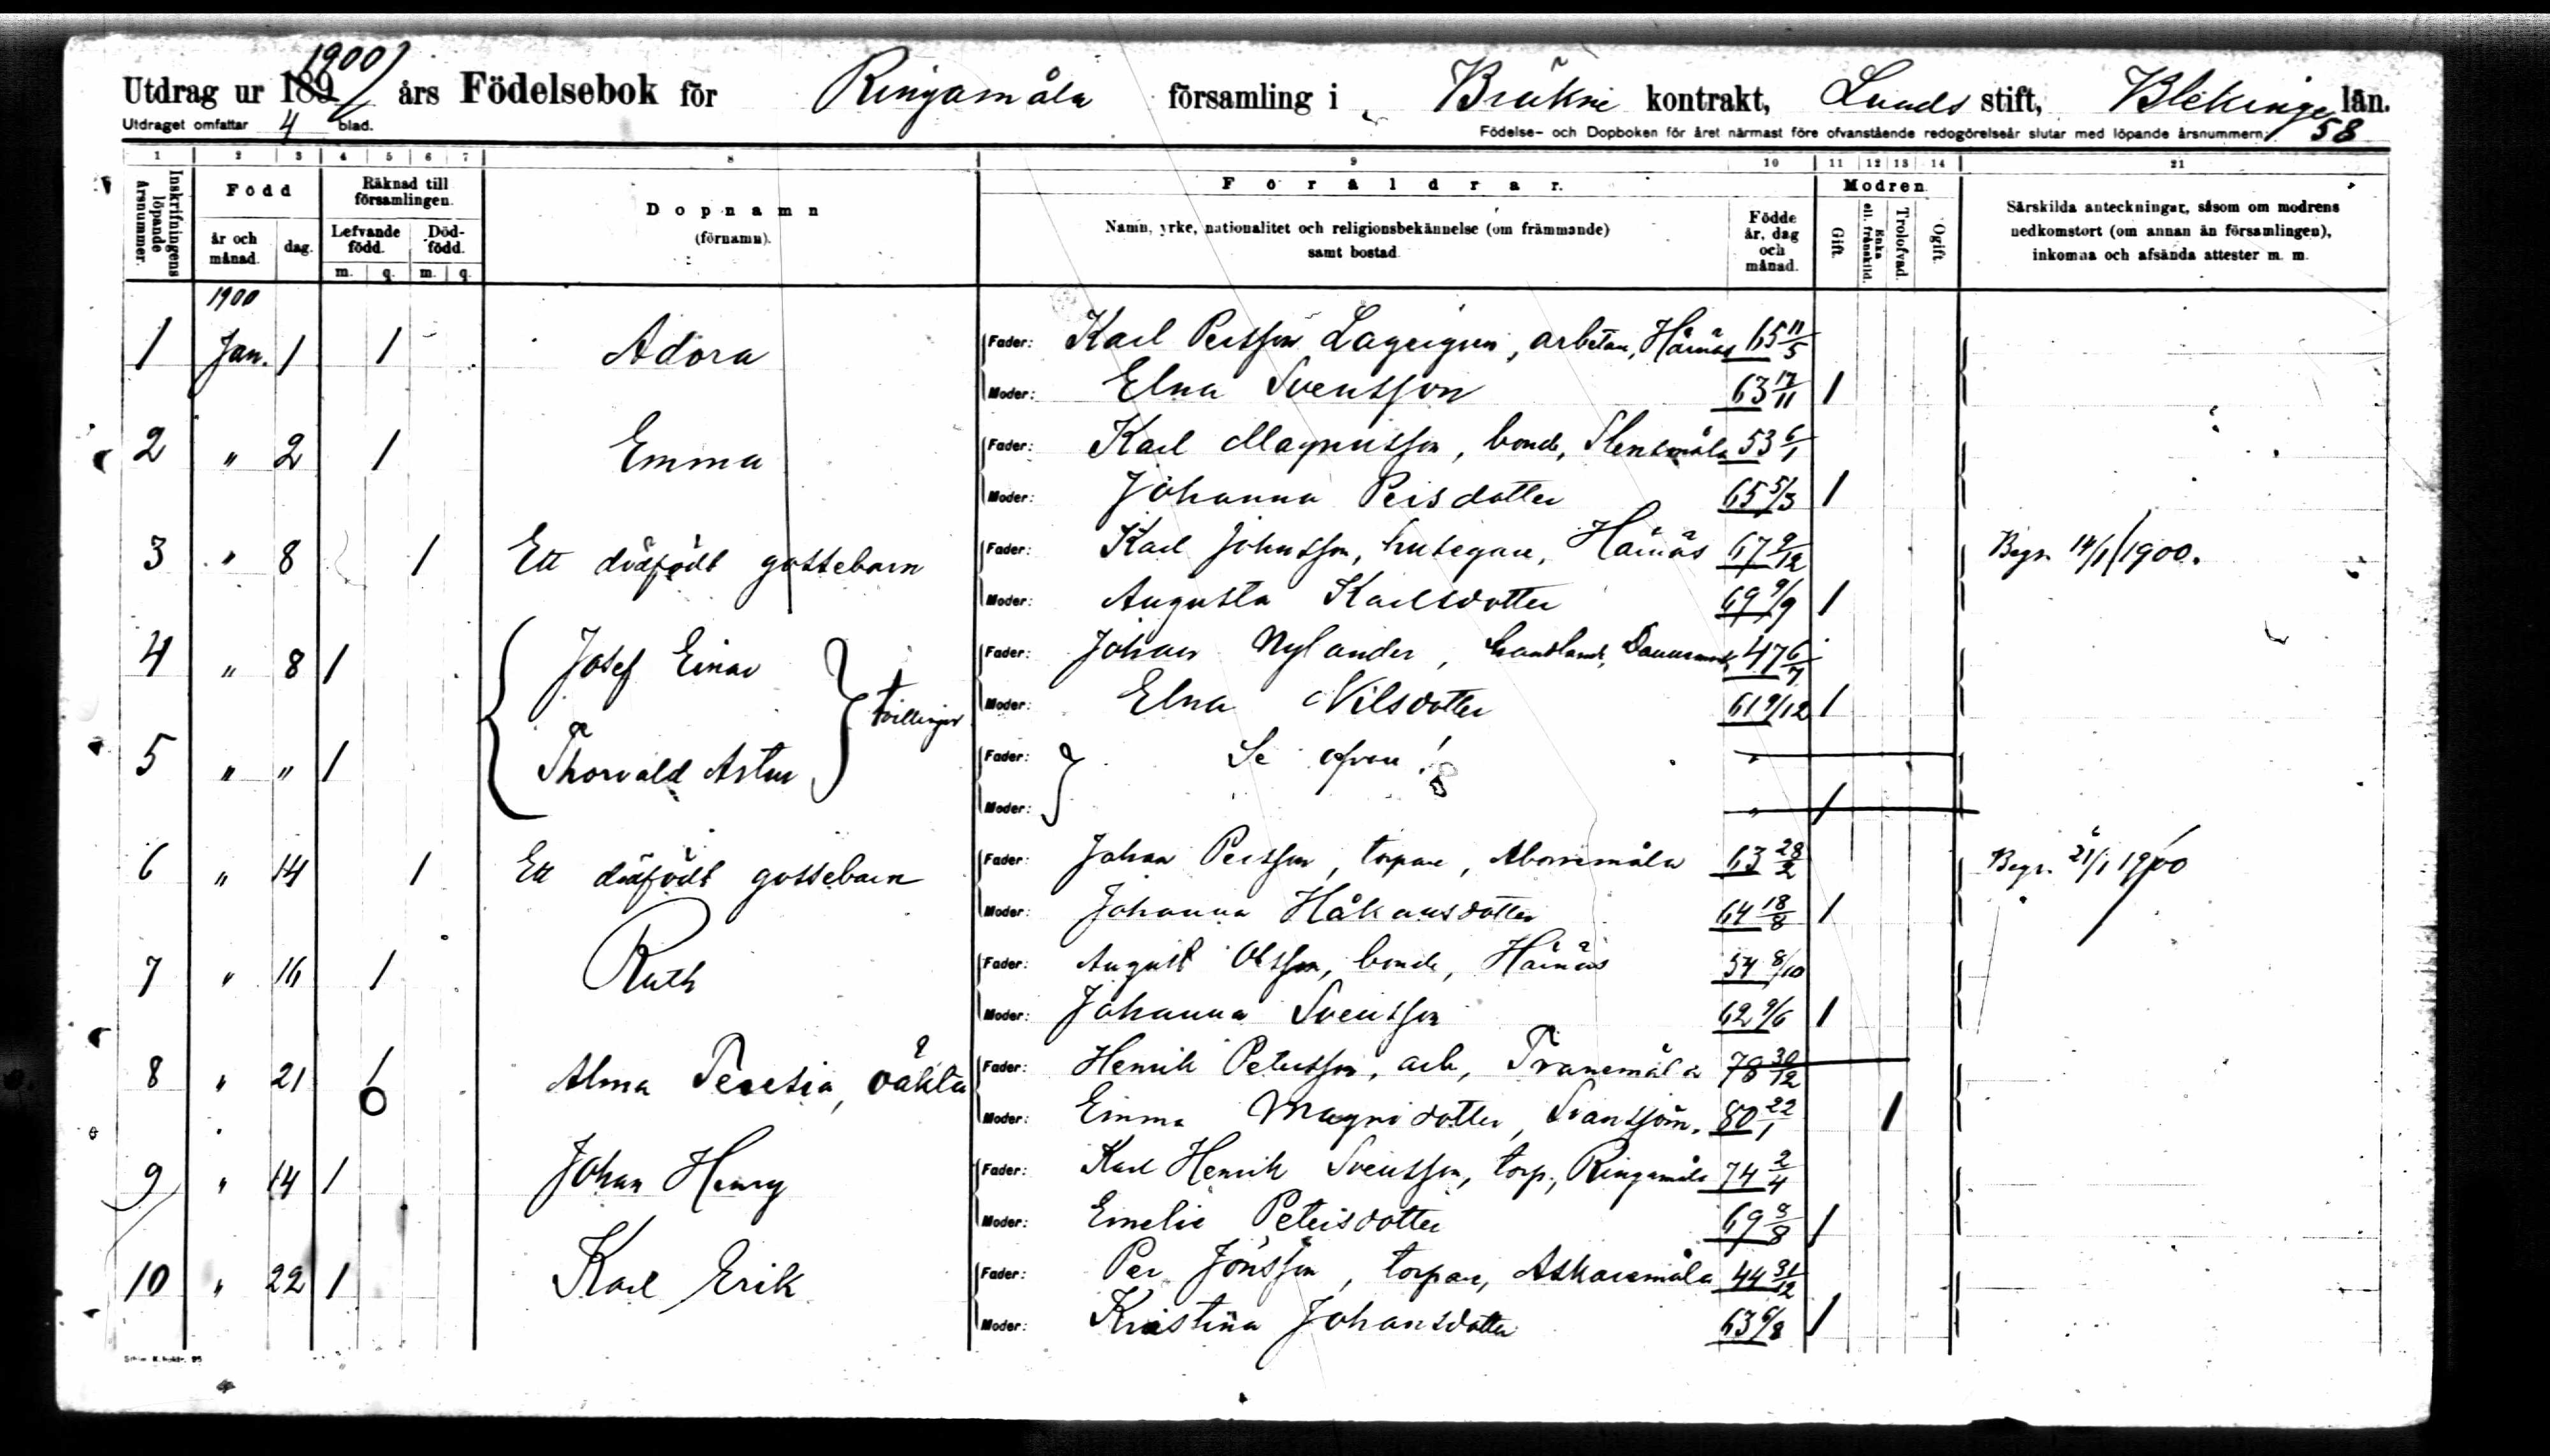 Utdrag ur 189 1900 års Födelsebok för Ringamåla församling i Bräkne kontrakt, Lunds stift, Blekinge län.
Utdraget omfattar 4 blad. Födelse- och Dopboken för året närmast före ofvanstående redogörelseår slutar med löpande årsnummern 58
1 2 3 4 5 6 7 8 9 10 11 12 13 14 21
Inskrifningens löpande årsnummer.
Född
år och månad. dag.
Räknad till församlingen.
Lefvande född. Död-född.
m. q. m. q.
Dopnamn
(förnamn).
Föräldrar.
Namn, yrke, nationalitet och religionsbekännelse (om främmande)
samt bostad
Födde år, dag och månad.
Modren
Gift. Enka ell. frånskild. Trolofvad. Ogift.
Särskilda anteckningar, såsom om modrens
nedkomstort (om annan än församlingen),
inkomna och afsända attester m. m.
1900
1 Jan. 1 1 Adora Fader: Karl Persson Lagergren, arbetare, Härnäs 65 11/5
Moder: Elna Svensson 63 17/11 1
2 " 2 1 Emma Fader: Karl Magnusson, bonde, Stensmåla 53 6/1
Moder: Johanna Persdotter 65 5/3 1
3 " 8 1 Ett dödfödt gossebarn Fader: Karl Johnsson, husegare, Härnäs 67 9/12 Begr. 14/1 1900.
Moder: Augusta Karlsdotter 69 9/9 1
4 " 8 1 Josef Einar tvillingar Fader: Johan Nylander, 47 6/7
Moder: Elna Nilsdotter 61 9/12 1
5 " " 1 Thorvald Artur Fader: Se ofvan!
Moder: " 1
6 " 14 1 Ett dödfödt gossebarn Fader: Johan Persson, torpare, Aborremåla 63 28/2 Begr. 21/1 1900
Moder: Johanna Håkansdotter 64 18/8 1
7 " 16 1 Ruth Fader: August Olsson, bonde, Härnäs 54 8/10
Moder: Johanna Svensson 62 9/6 1
8 " 21 1 Alma Teresia, oäkta Fader: Henrik Petersson, arb., Tranemåla 78 30/12
Moder: Emma Magnidotter, Svansjöm. 80 22/1 1
9 " 14 1 Johan Henry Fader: Karl Henrik Svensson, torp., Ringamåla 74 2/4
Moder: Emelie Petersdotter 69 8/8 1
10 " 22 1 Karl Erik Fader: Per Jönsson, torpare, Askaremåla 44 31/12
Moder: Kristina Johansdotter 63 6/8 1